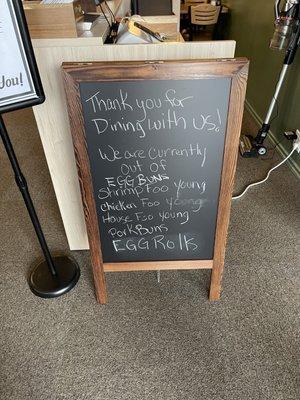 you!
Thank you for
Dining with us!
We are Currently
Out of
EGG BUNS
Shrimp Foo young
Chicken Foo Young
House Foo young
Pork Buns
EGG Rolls